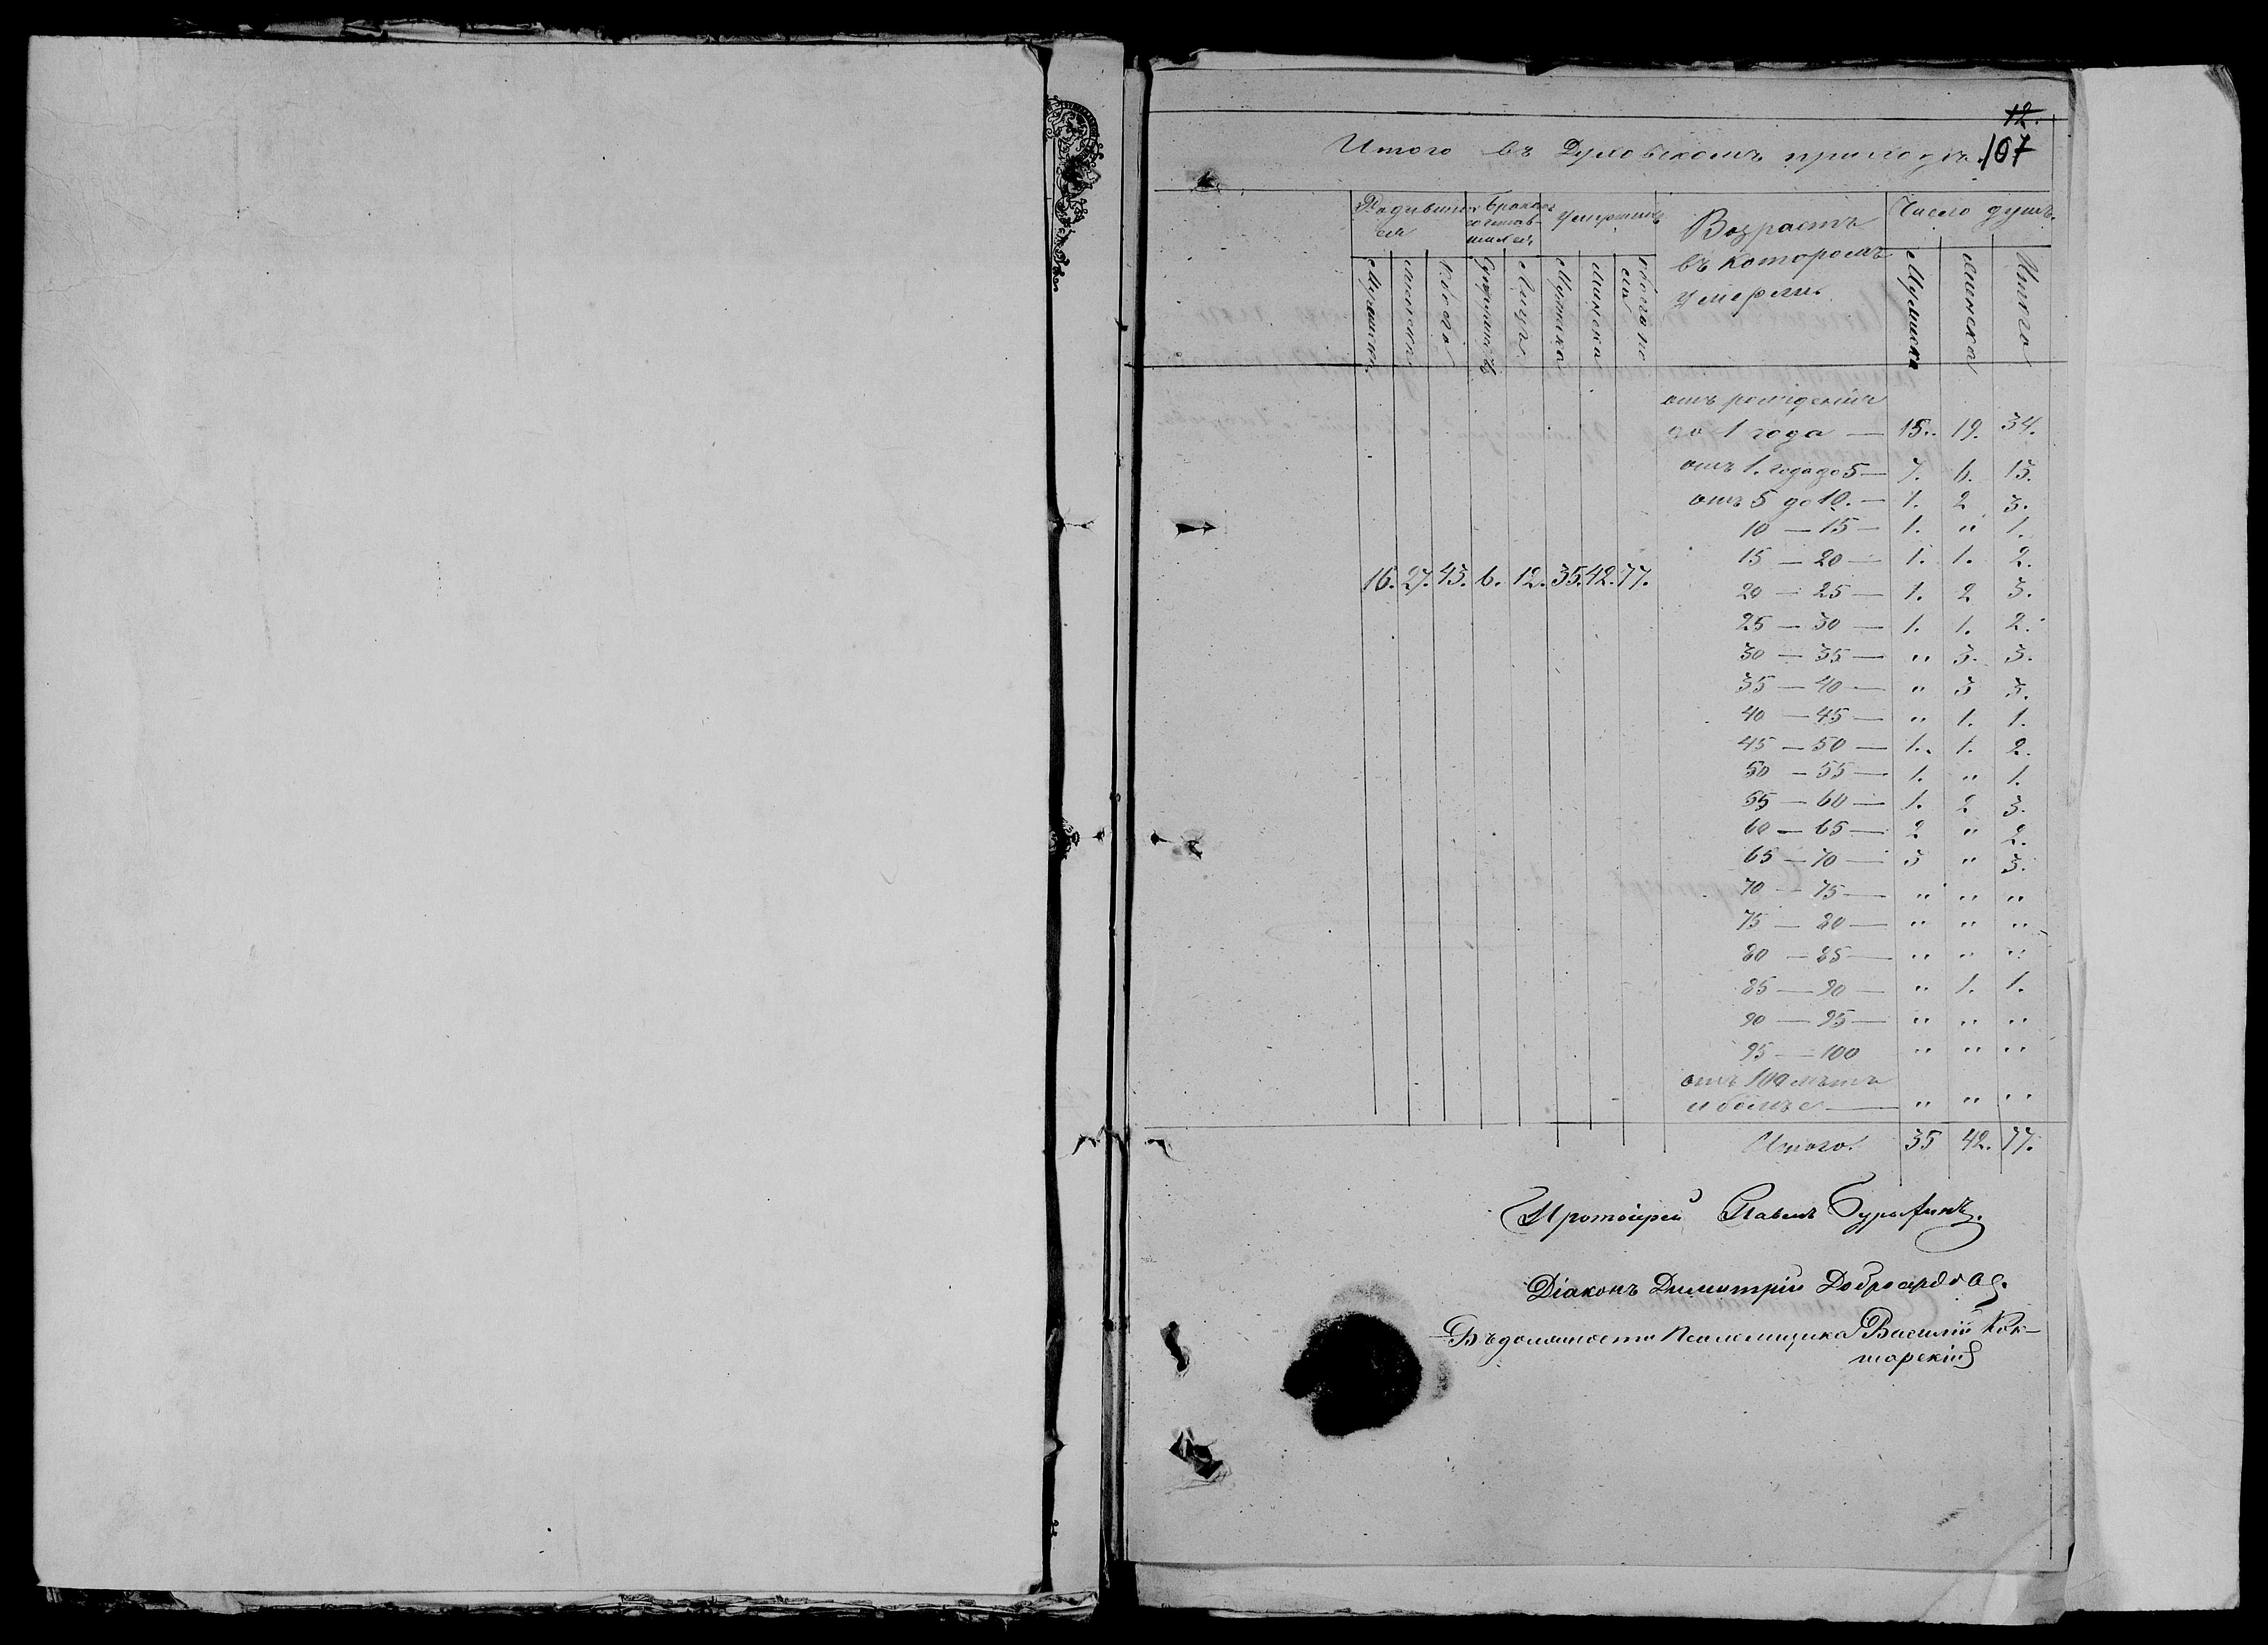 12.
107
Итого въ Духовскомъ приходѣ.
Родивших
ся
Бракомъ
сочетав-
шихся
Умершихъ
Возрастъ
въ которомъ
умерли.
Число душъ.
Мужеска
Женска
Обоего
Супружествъ
Лицъ
Мужеска
Женска
Обоего по
ла
Мужеска
Женска
Итого
отъ рожденія
до 1 года — 15. 19. 34.
отъ 1. года до 5 — 7. 6. 13.
отъ 5 до 10. — 1. 2 3.
10 — 15 — 1. " 1.
15 — 20 — 1. 1. 2.
16. 27. 43. 6. 12. 35. 42. 77.
20 — 25 — 1. 2 3.
25 — 30 — 1. 1. 2.
30 — 35 — " 3. 3.
35 — 40 — " 3 3.
40 — 45 — " 1. 1.
45 — 50 — 1. 1. 2.
50 — 55 — 1. " 1.
55 — 60 — 1. 2 3.
60 — 65 — 2 " 2.
65 — 70 — 3 " 3.
70 — 75 — " " "
75 — 80 — " " "
80 — 85 — " " "
85 — 90 — " 1. 1.
90 — 95 — " " "
95 — 100 " " "
отъ 100 лѣтъ
и болѣе — " " "
Итого. 35 42. 77.
Протоіерей Павелъ
Діаконъ Димитрій
Въ должности Псаломщика Василій Кон-